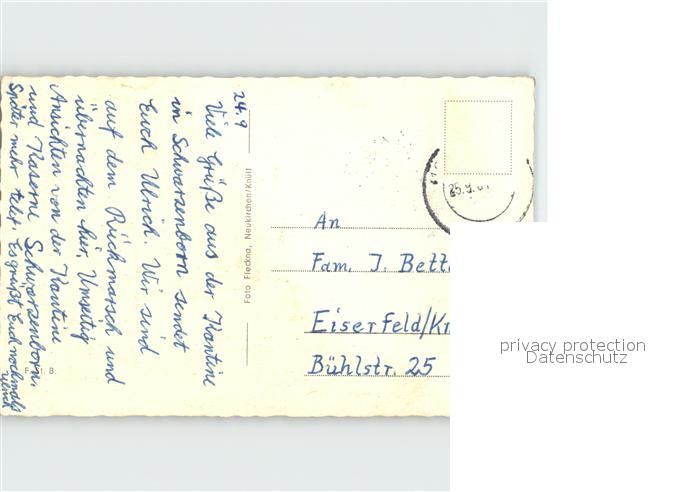 24.9
Viele Grüße aus der Kantine
in Schwarzenborn sendet
Euch Ulrich. Wir sind
auf dem Rückmarsch und
übernachten hier. Umseitig
Ansichten von der Kantine
und Kaserne Schwarzenborn.
Später mehr. Es grüßt Euch nochmals
Ulrich
Foto Fleckna, Neukirchen/Knüll
An
Fam. J. Bett
Eiserfeld/Kr
Bühlstr. 25
privacy protection
Datenschutz